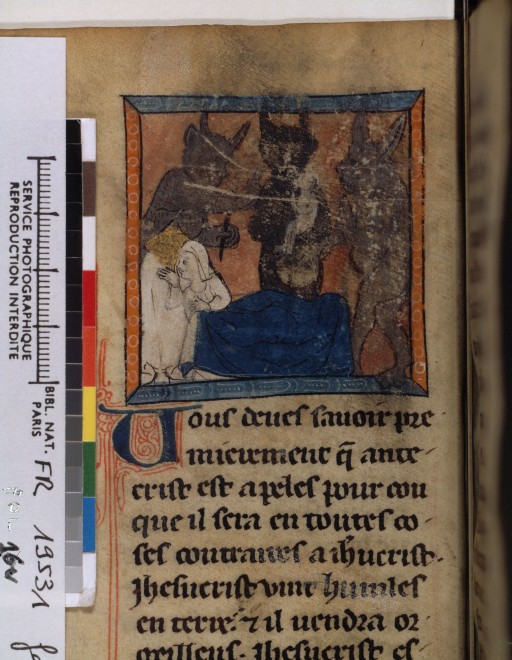 SERVICE PHOTOGRAPHIQUE
REPRODUCTION INTERDITE
BIBL. NAT.
PARIS
FR 19531
16v
Uous deues sauoir pre
mierement q̃ ante
crist est apeles pour cou
que il sera en toutes co
ses contraires a ih̃ucrist.
Jhesucrist vint humles
en terre. ⁊ il uendra or
geilleus. Jhesucrist es